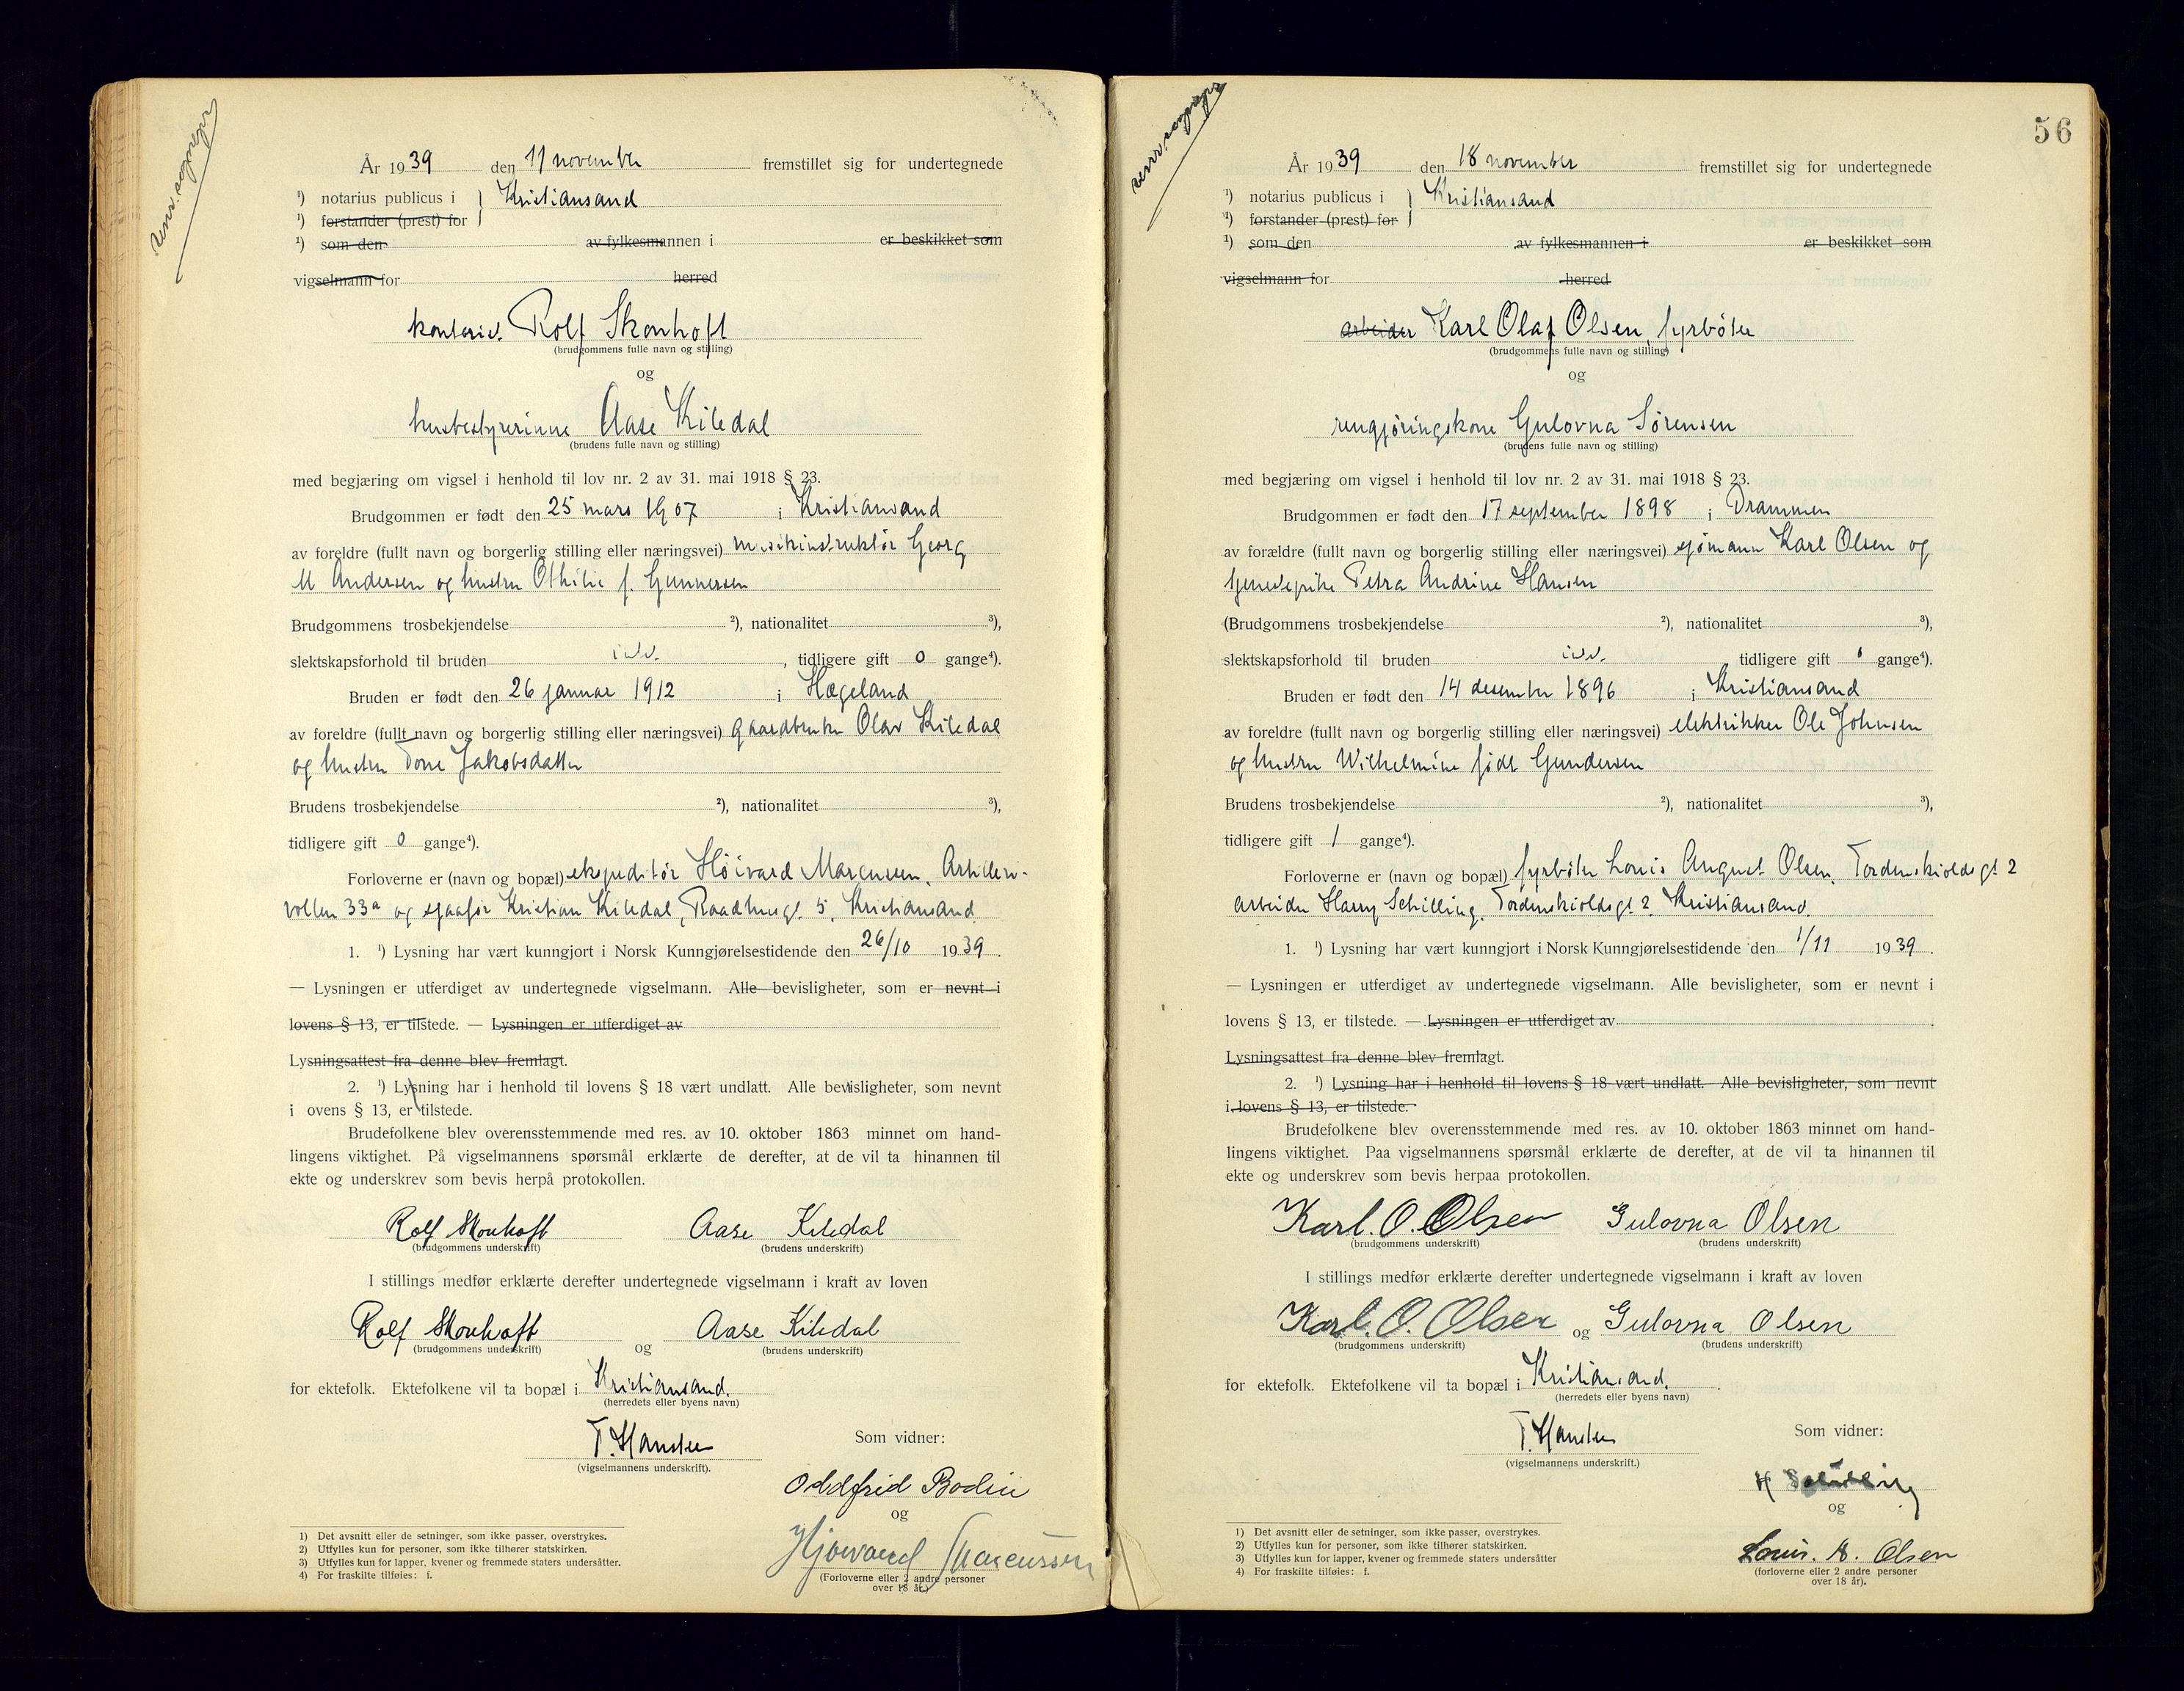 År 1939 den 11 november fremstillet sig for undertegnede
¹) notarius publicus i } Kristiansand
¹) forstander (prest) for
¹) som den av fylkesmannen i er beskikket som
vigselmann for herred
kontorist. Rolf Skonhoft
(brudgommens fulle navn og stilling)
og
husbestyrerinne Aase Kiledal
(brudens fulle navn og stilling)
med begjæring om vigsel i henhold til lov nr. 2 av 31. mai 1918 § 23.
Brudgommen er født den 25 mars 1907 i Kristiansand
av foreldre (fullt navn og borgerlig stilling eller næringsvei) musikinstruktør Georg
M Andersen og hustru Othilie f. Gunnersen
Brudgommens trosbekjendelse ²), nationalitet ³),
slektskapsforhold til bruden , tidligere gift 0 gange⁴).
Bruden er født den 26 januar 1912 i Hægeland
av foreldre (fullt navn og borgerlig stilling eller næringsvei) gaardbruker Olav Kiledal
og hustru Tone Jakobsdatter
Brudens trosbekjendelse ²), nationalitet ³),
tidligere gift 0 gange⁴).
Forloverne er (navn og bopæl) ekspeditør Höivard Marcussen, Artilleri-
vollen 33a og sjaafør Kristian Kiledal, Raadhusgt. 5, Kristiansand
1. ¹) Lysning har vært kunngjort i Norsk Kunngjørelsestidende den 26/10 1939.
— Lysningen er utferdiget av undertegnede vigselmann. Alle bevisligheter, som er nevnt i
lovens § 13, er tilstede. — Lysningen er utferdiget av
Lysningsattest fra denne blev fremlagt.
2. ¹) Lysning har i henhold til lovens § 18 vært undlatt. Alle bevisligheter, som nevnt
i ovens § 13, er tilstede.
Brudefolkene blev overensstemmende med res. av 10. oktober 1863 minnet om hand-
lingens viktighet. På vigselmannens spørsmål erklærte de derefter, at de vil ta hinannen til
ekte og underskrev som bevis herpå protokollen.
Rolf Skonhoft Aase Kiledal
(brudgommens underskrift) (brudens underskrift)
I stillings medfør erklærte derefter undertegnede vigselmann i kraft av loven
Rolf Skonhoft og Aase Kiledal
(brudgommens underskrift) (brudens underskrift)
for ektefolk. Ektefolkene vil ta bopæl i Kristiansand.
(herredets eller byens navn)
T. Hansten
(vigselmannens underskrift).
Som vidner:
Oddfrid Bodin
og
Hjövard Marcussen
(Forloverne eller 2 andre personer
over 18 år.)
1) Det avsnitt eller de setninger, som ikke passer, overstrykes.
2) Utfylles kun for personer, som ikke tilhører statskirken.
3) Utfylles kun for lapper, kvener og fremmede staters undersåtter.
4) For fraskilte tilføies: f.
56
År 1939 den 18 november fremstillet sig for undertegnede
¹) notarius publicus i } Kristiansand
¹) forstander (prest) for
¹) som den av fylkesmannen i er beskikket som
vigselmann for herred
arbeider Karl Olaf Olsen, fyrböter
(brudgommens fulle navn og stilling)
og
rengjøringskone Gulovna Sørensen
(brudens fulle navn og stilling)
med begjæring om vigsel i henhold til lov nr. 2 av 31. mai 1918 § 23.
Brudgommen er født den 17 september 1898 i Drammen
av forældre (fullt navn og borgerlig stilling eller næringsvei) sjömann Karl Olsen og
tjenestepike Petra Andrine Hansen
(Brudgommens trosbekjendelse ²), nationalitet ³),
slektskapsforhold til bruden tidligere gift gange⁴).
Bruden er født den 14 desember 1896 i Kristiansand
av foreldre (fullt navn og borgerlig stilling eller næringsvei) elektrikker Ole Johnsen
og hustru Wilhelmine født Gundersen
Brudens trosbekjendelse ²), nationalitet ³),
tidligere gift 1 gange⁴).
Forloverne er (navn og bopæl) fyrböter Louis August Olsen, Tordenskioldsgt 2
arbeider Harry Schilling, Tordenskioldsgt 2, Kristiansand.
1. ¹) Lysning har vært kunngjort i Norsk Kunngjørelsestidende den 1/11 1939.
— Lysningen er utferdiget av undertegnede vigselmann. Alle bevisligheter, som er nevnt i
lovens § 13, er tilstede. — Lysningen er utferdiget av
Lysningsattest fra denne blev fremlagt.
2. ¹) Lysning har i henhold til lovens § 18 vært undlatt. Alle bevisligheter, som nevnt
i lovens § 13, er tilstede.
Brudefolkene blev overensstemmende med res. av 10. oktober 1863 minnet om hand-
lingens viktighet. Paa vigselmannens spørsmål erklærte de derefter, at de vil ta hinannen til
ekte og underskrev som bevis herpaa protokollen.
Karl. O. Olsen Gulovna Olsen
(brudgommens underskrift) (brudens underskrift)
I stillings medfør erklærte derefter undertegnede vigselmann i kraft av loven
Karl. O. Olsen og Gulovna Olsen
(brudgommens underskrift) (brudens underskrift)
for ektefolk. Ektefolkene vil ta bopæl i Kristiansand.
(herredets eller byens navn)
T. Hansten
(vigselmannens underskrift.)
Som vidner:
H Schilling
og
Louis. A. Olsen
(forloverne eller 2 andre personer
over 18 år).
1) Det avsnitt eller de setninger, som ikke passer, overstrykes.
2) Utfylles kun for personer, som ikke tilhører statskirken.
3) Utfylles kun for lapper, kvener og fremmede staters undersåtter
4) For fraskilte tilføies: f.